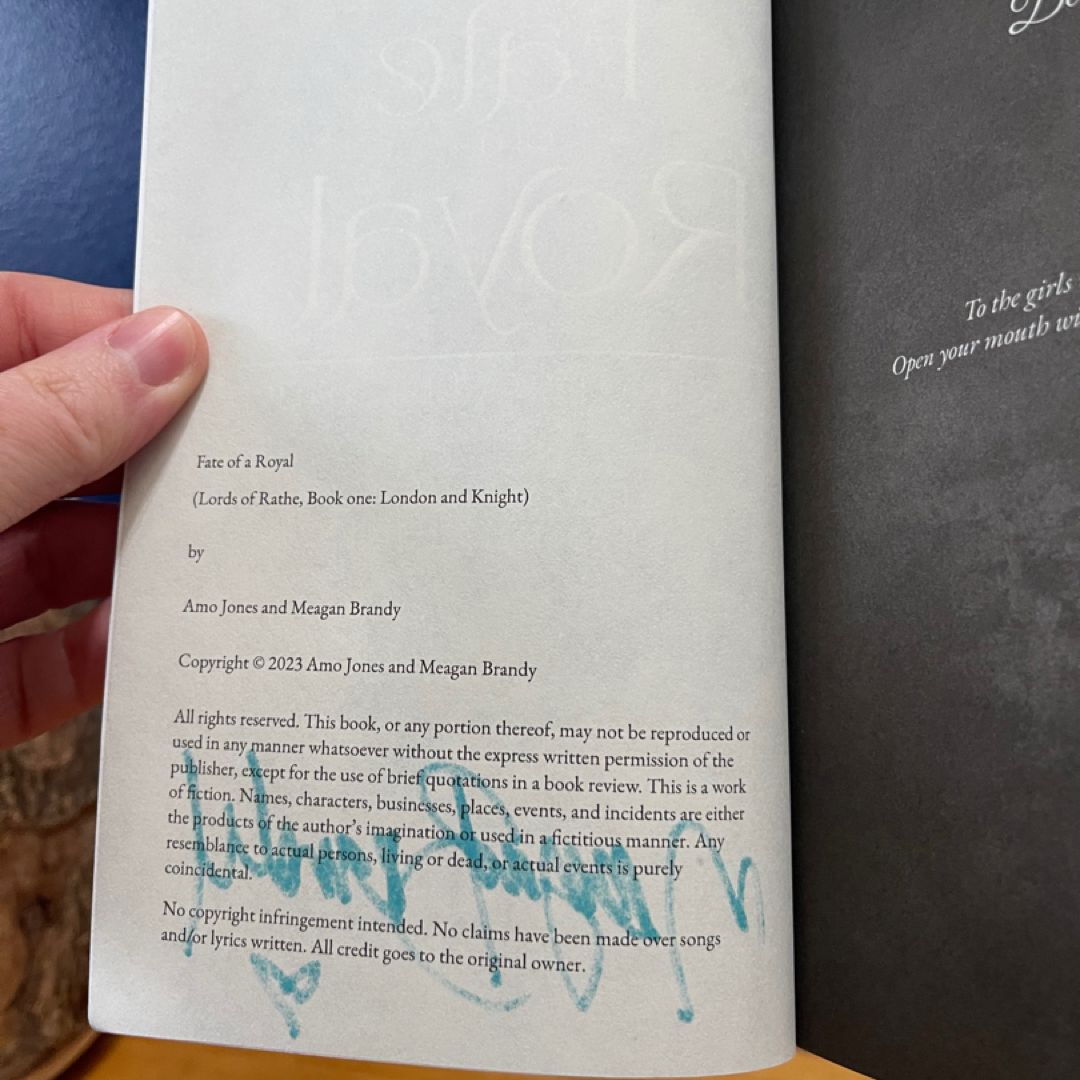 Fate of a Royal
(Lords of Rathe, Book one: London and Knight)
by
Amo Jones and Meagan Brandy
Copyright © 2023 Amo Jones and Meagan Brandy
All rights reserved. This book, or any portion thereof, may not be reproduced or
used in any manner whatsoever without the express written permission of the
publisher, except for the use of brief quotations in a book review. This is a work
of fiction. Names, characters, businesses, places, events, and incidents are either
the products of the author's imagination or used in a fictitious manner. Any
resemblance to actual persons, living or dead, or actual events is purely
coincidental.
No copyright infringement intended. No claims have been made over songs
and/or lyrics written. All credit goes to the original owner.
To the girls
Open your mouth